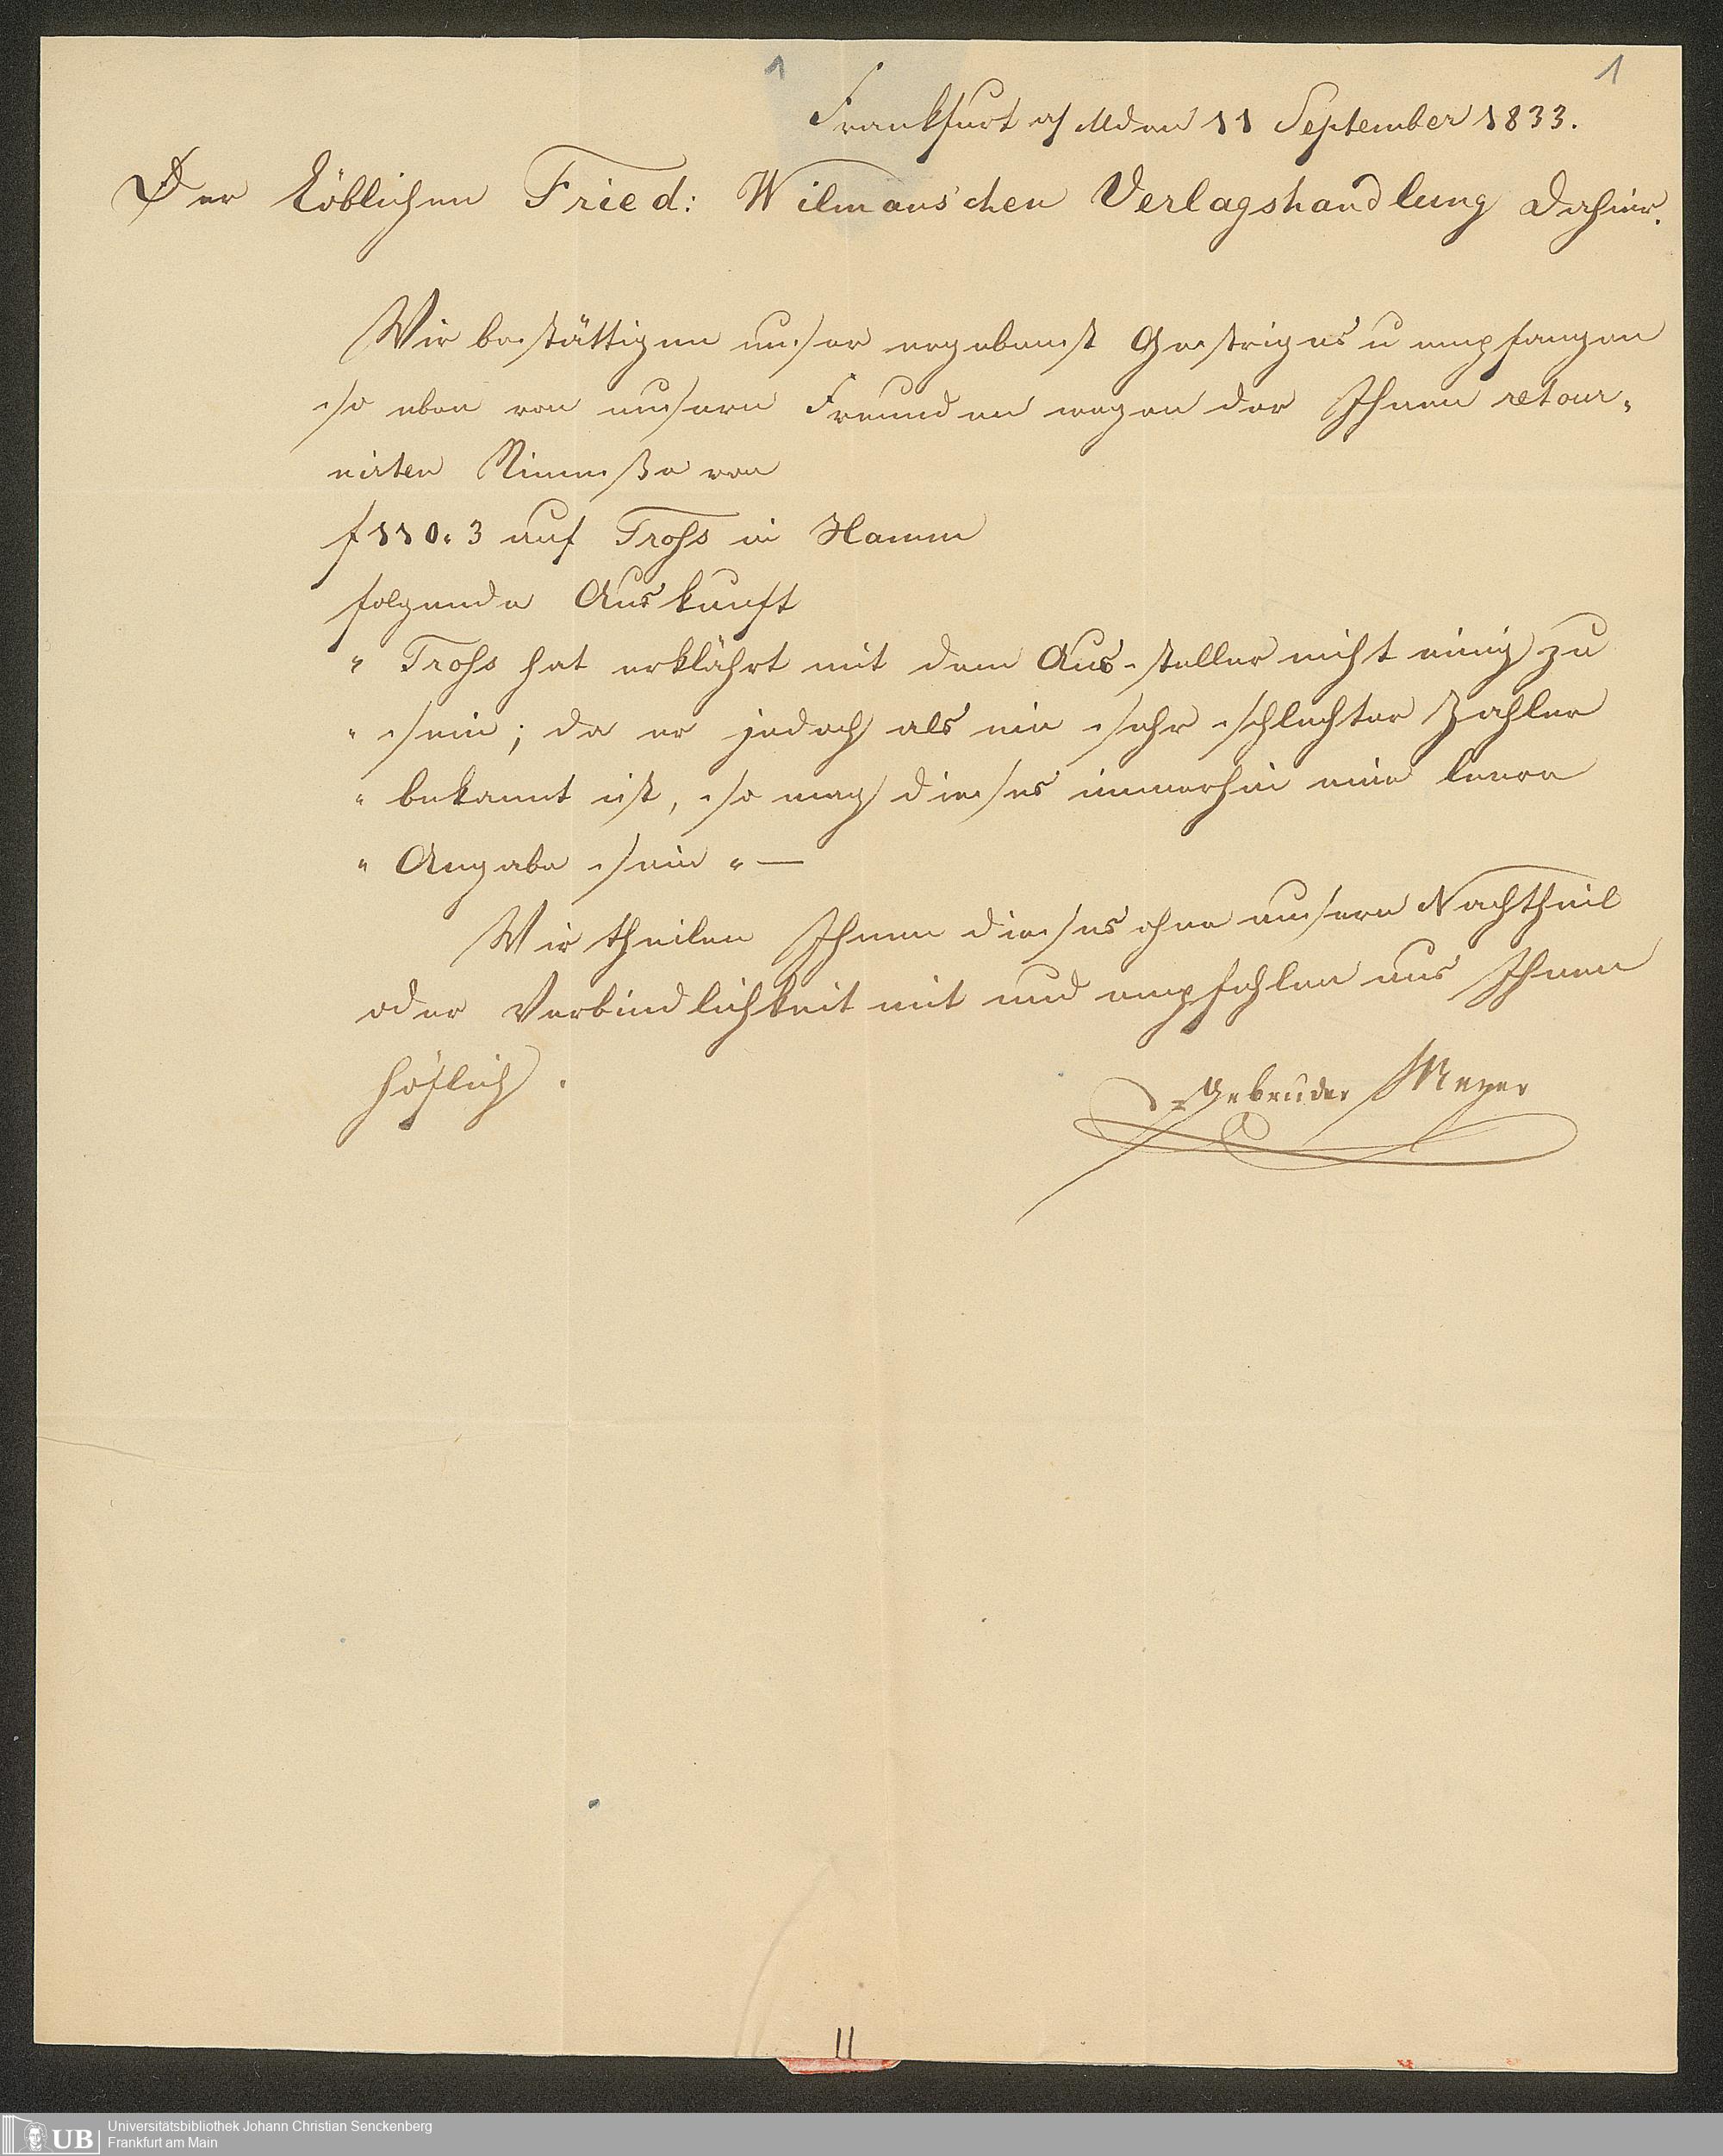 1 1
Frankfurt a/ M den 11 September 1833.
Der Löblichen Fried: Wilmans'chen Verlagshandlung dahier.
Wir bestättigen unser ergebenst Gestriges u empfangen
so eben von unsern Freunden wegen der Ihnen retour„
nirten Rimeße von
f 110. 3 auf Trohs in Hamm
folgende Auskunft
" Trohs hat erklährt mit dem Aussteller nicht einig zu
" sein; da er jedoch als ein sehr schlechter Zahler
" bekannt ist, so mag dieses immerhin eine leere
" Angabe sein " —
Wir theilen Ihnen dieses ohne unsern Nachtheil
oder Verbindlichkeit mit und empfehlen uns Ihnen
höflich.
Gebrüder Meyer
II
UB Universitätsbibliothek Johann Christian Senckenberg
Frankfurt am Main